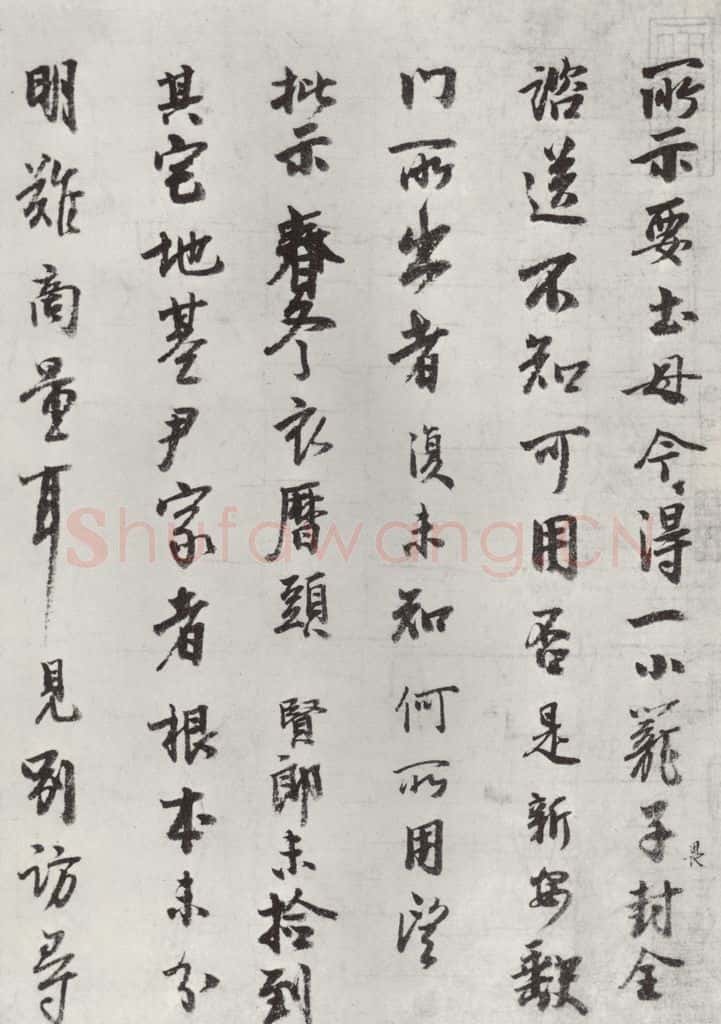 所示要土母今得一小籠子封全
諮送不知可用否是新安缺
门所出者復未知何所用望
批示春冬衣曆頭 賢郎未拾到
其宅地基尹家者根本未分
明難商量耳見別訪尋
Shufawang.CN